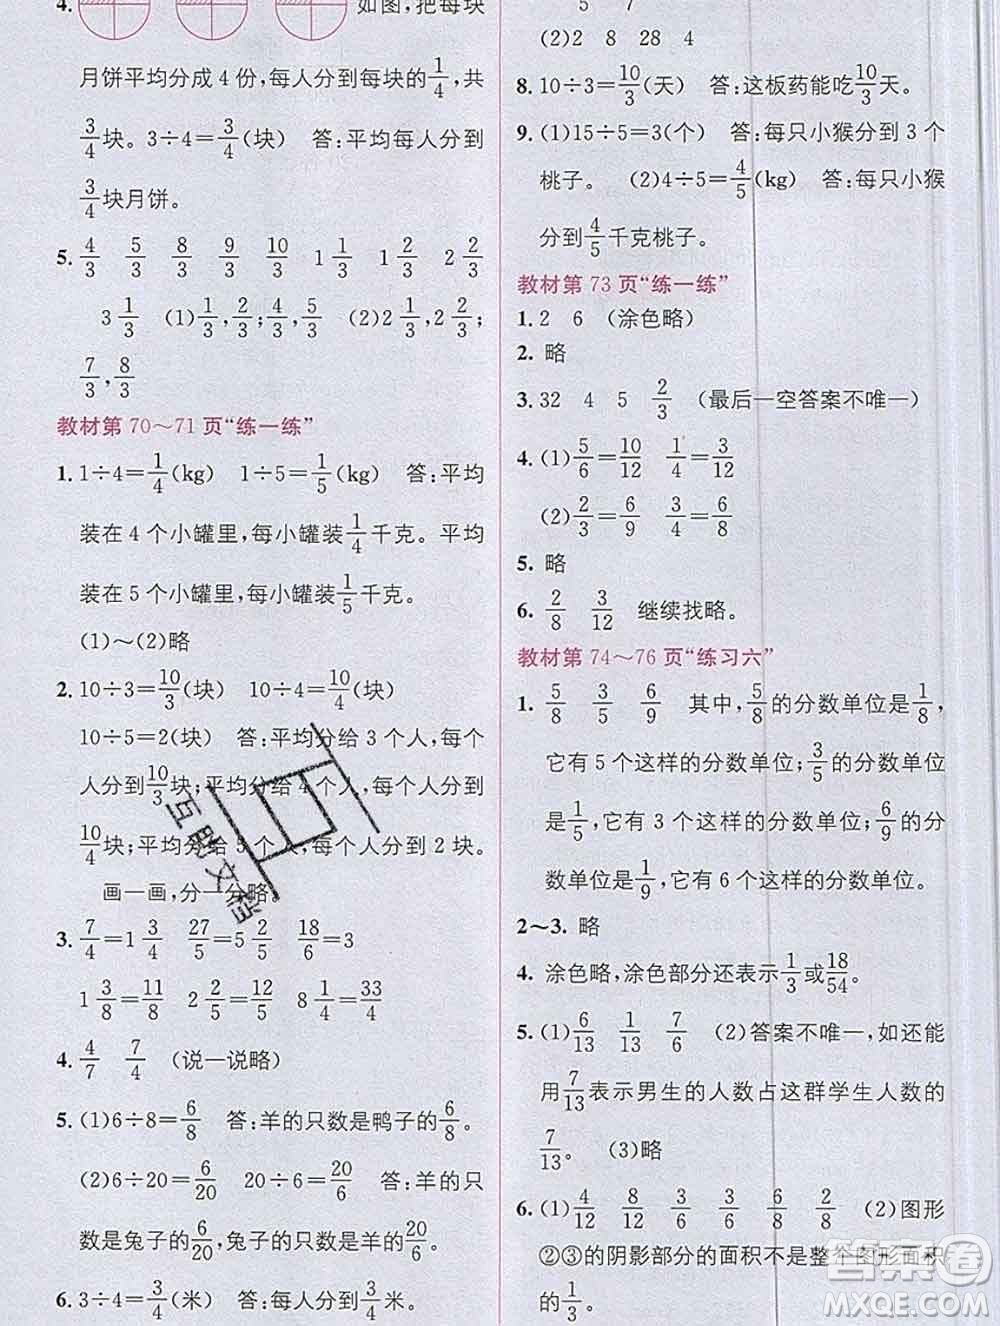 4. 如图，把每块
月饼平均分成 4 份，每人分到每块的1/4，共
3/4块。3÷4=3/4(块) 答：平均每人分到
3/4块月饼。
5. 4/3 5/3 8/3 9/3 10/3 1 1/3 1 2/3 2 2/3
3 1/3 (1)1/3,2/3;4/3,5/3 (2)2 1/3,2 2/3;
7/3,8/3
教材第 70～71 页“练一练”
1. 1÷4=1/4(kg) 1÷5=1/5(kg) 答：平均
装在 4 个小罐里，每小罐装1/4千克。平均
装在 5 个小罐里，每小罐装1/5千克。
(1)～(2)略
2. 10÷3=10/3(块) 10÷4=10/4(块)
10÷5=2(块) 答：平均分给 3 个人，每个
人分到10/3块；平均分给 4 个人，每个人分到
10/4块；平均分给 5 个人，每个人分到 2 块。
画一画，分一分略。
3. 7/4=1 3/4 27/5=5 2/5 18/6=3
1 3/8=11/8 2 2/5=12/5 8 1/4=33/4
4. 4/7 7/4 (说一说略)
5. (1)6÷8=6/8 答：羊的只数是鸭子的6/8。
(2)6÷20=6/20 20÷6=20/6 答：羊的只
数是兔子的6/20，兔子的只数是羊的20/6。
6. 3÷4=3/4(米) 答：每人分到3/4米。
5 7 8
(2)2 8 28 4
8. 10÷3=10/3(天) 答：这板药能吃10/3天。
9. (1)15÷5=3(个) 答：每只小猴分到 3 个
桃子。 (2)4÷5=4/5(kg) 答：每只小猴
分到4/5千克桃子。
教材第 73 页“练一练”
1. 2 6 (涂色略)
2. 略
3. 32 4 5 2/3 (最后一空答案不唯一)
4. (1)5/6=10/12 1/4=3/12
(2)2/3=6/9 3/4=6/8
5. 略
6. 2/8 3/12 继续找略。
教材第 74～76 页“练习六”
1. 5/8 3/5 6/9 其中，5/8的分数单位是1/8，
它有 5 个这样的分数单位；3/5的分数单位
是1/5，它有 3 个这样的分数单位；6/9的分
数单位是1/9，它有 6 个这样的分数单位。
2～3. 略
4. 涂色略，涂色部分还表示1/3或18/54。
5. (1)6/13 1/13 7/6 (2)答案不唯一，如还能
用7/13表示男生的人数占这群学生人数的
7/13。 (3)略
6. (1)4/12 8/12 3/6 6/8 2/8 (2)图形
②③的阴影部分的面积不是整个图形面积
的1/3。
互助文档
答案卷
MXQE.COM